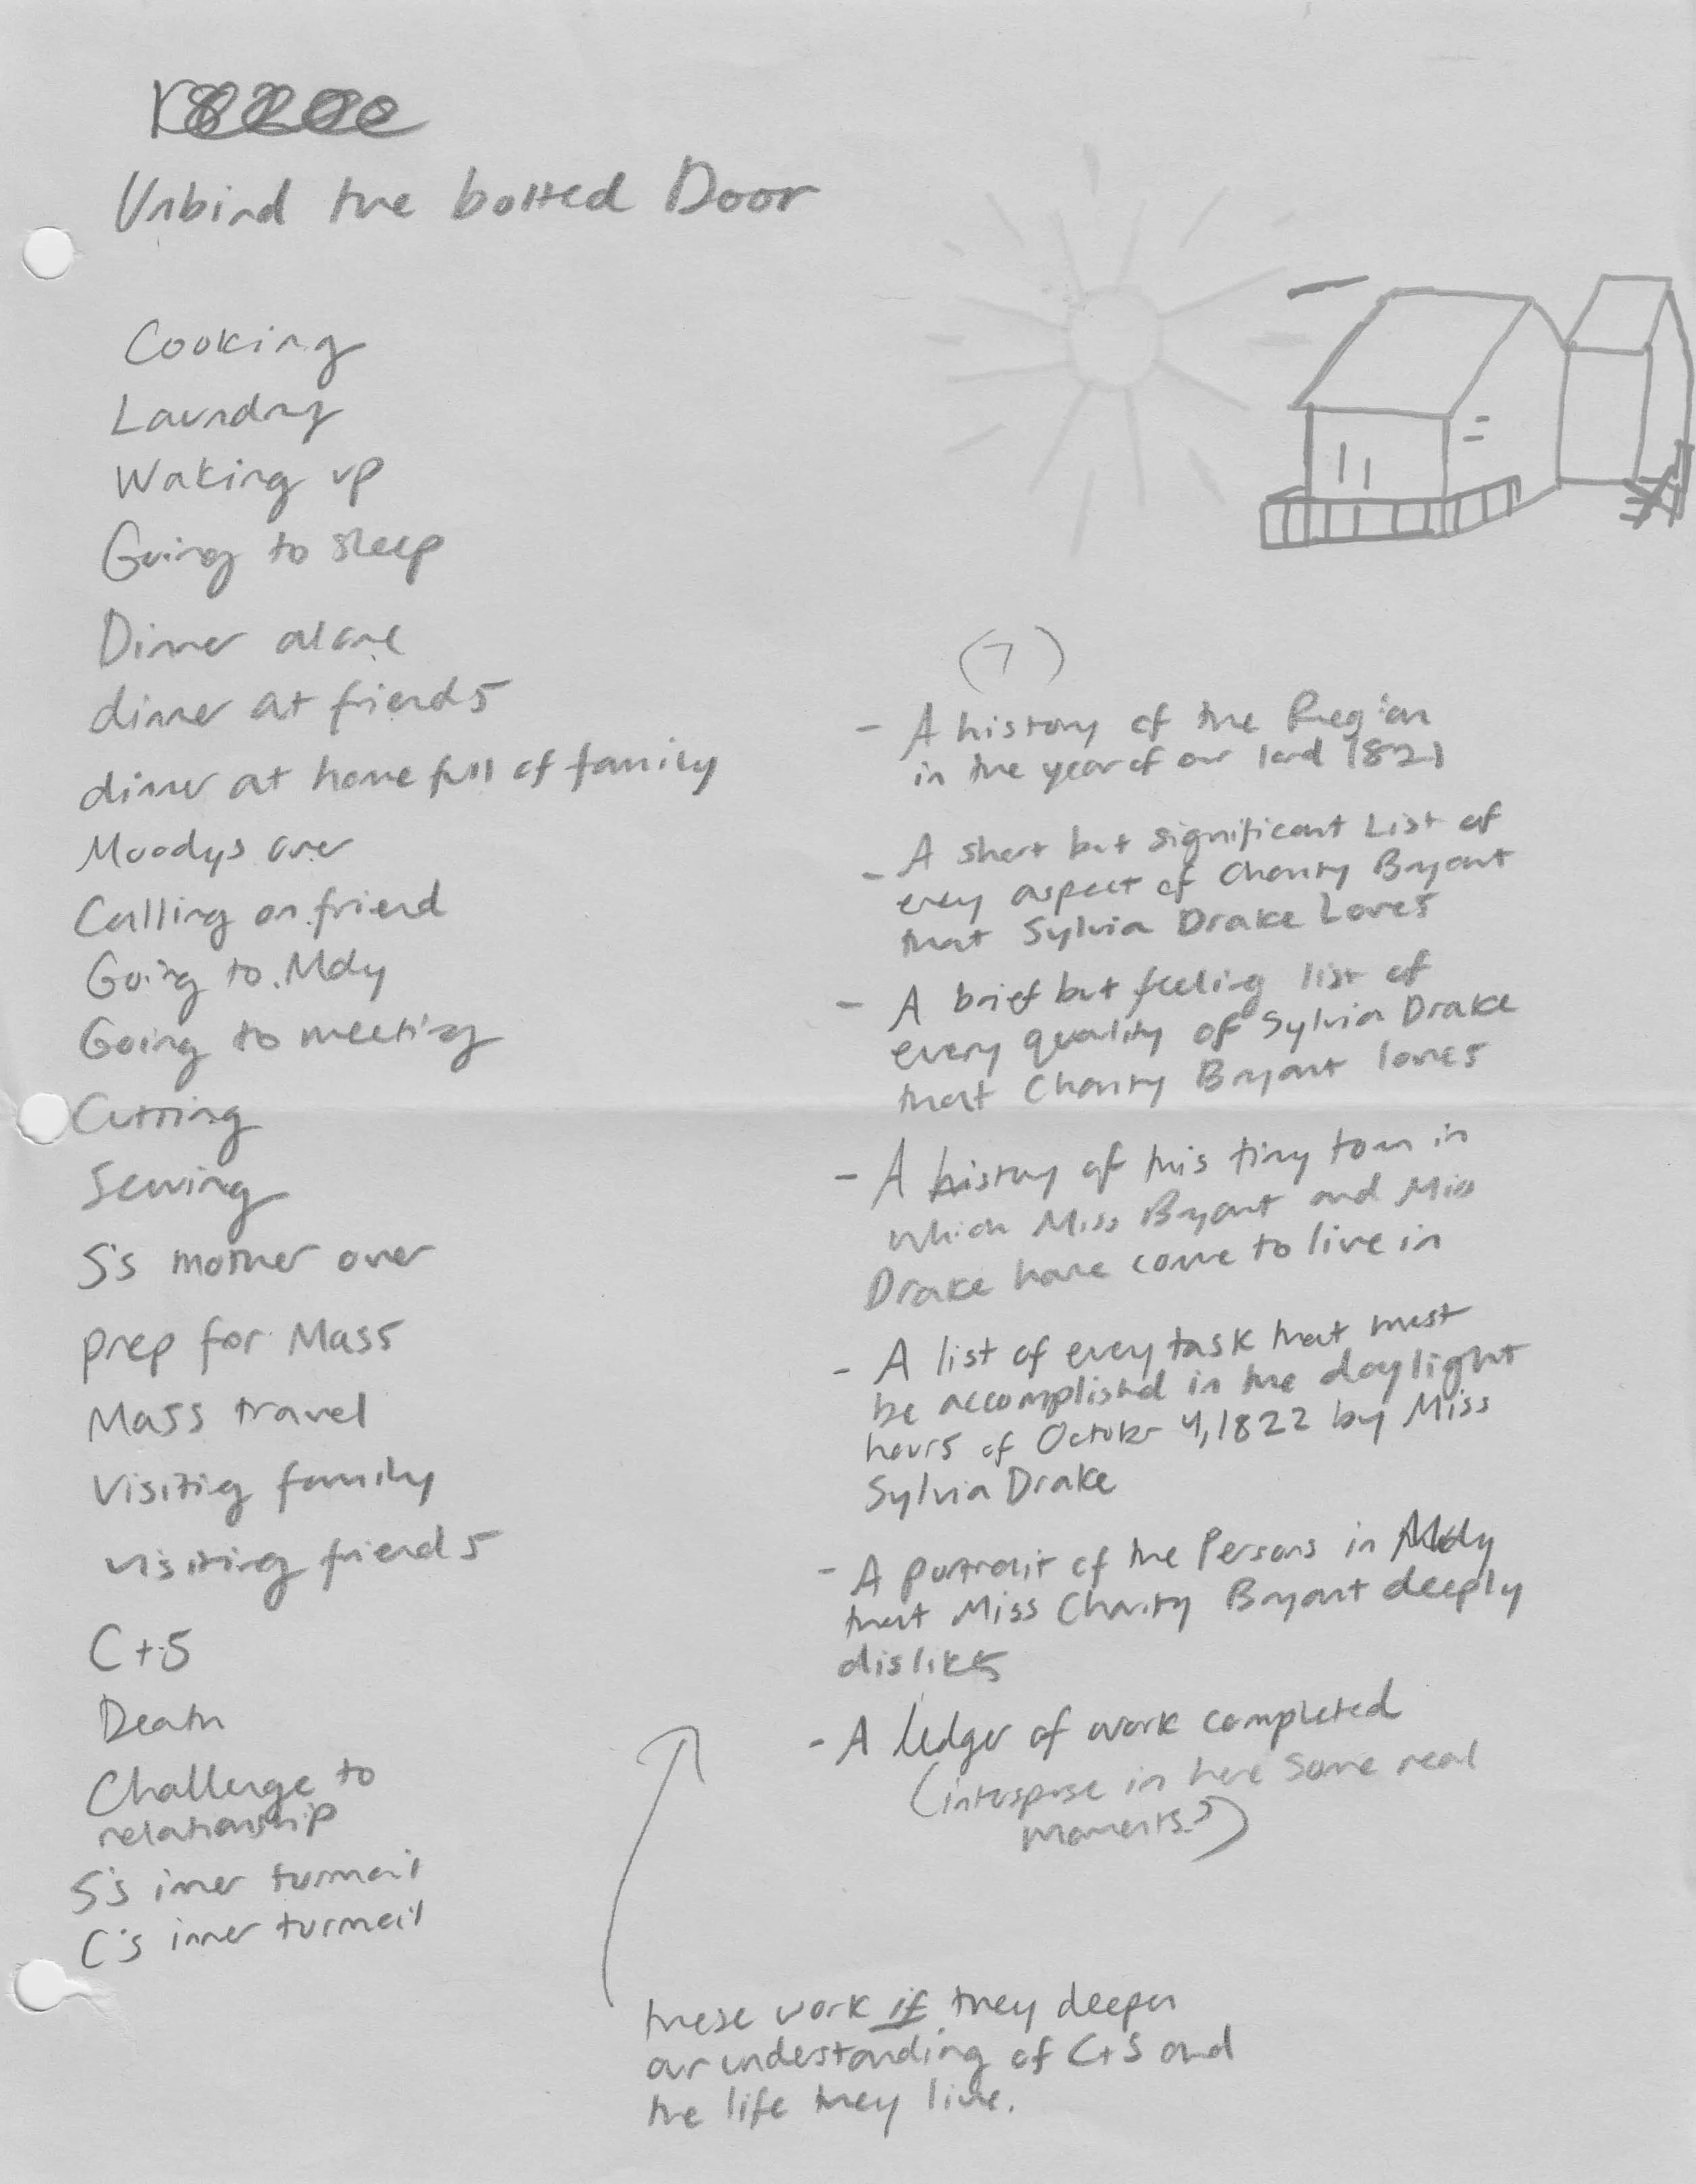 Unbind the bolted Door
Cooking
Laundry
Waking up
Going to sleep
Dinner alone
dinner at friends
dinner at home full of family
Moodys over
Calling on friend
Going to Mdy
Going to meeting
Cutting
Sewing
S's mother over
prep for Mass
Mass travel
Visiting family
visiting friends
C+S
Death
Challenge to
relationship
S's inner turmoil
C's inner turmoil
(7)
- A history of the Region
in the year of our lord 1821
- A short but significant List of
every aspect of Charity Bryant
that Sylvia Drake Loves
- A brief but feeling list of
every quality of Sylvia Drake
that Charity Bryant loves
- A history of this tiny town in
which Miss Bryant and Miss
Drake have come to live in
- A list of every task that must
be accomplished in the daylight
hours of October 4, 1822 by Miss
Sylvia Drake
- A portrait of the Persons in Mdy
that Miss Charity Bryant deeply
dislikes
- A ledger of work completed
(intersperse in here some real
moments?)
these work if they deepen
our understanding of C+S and
the life they live.